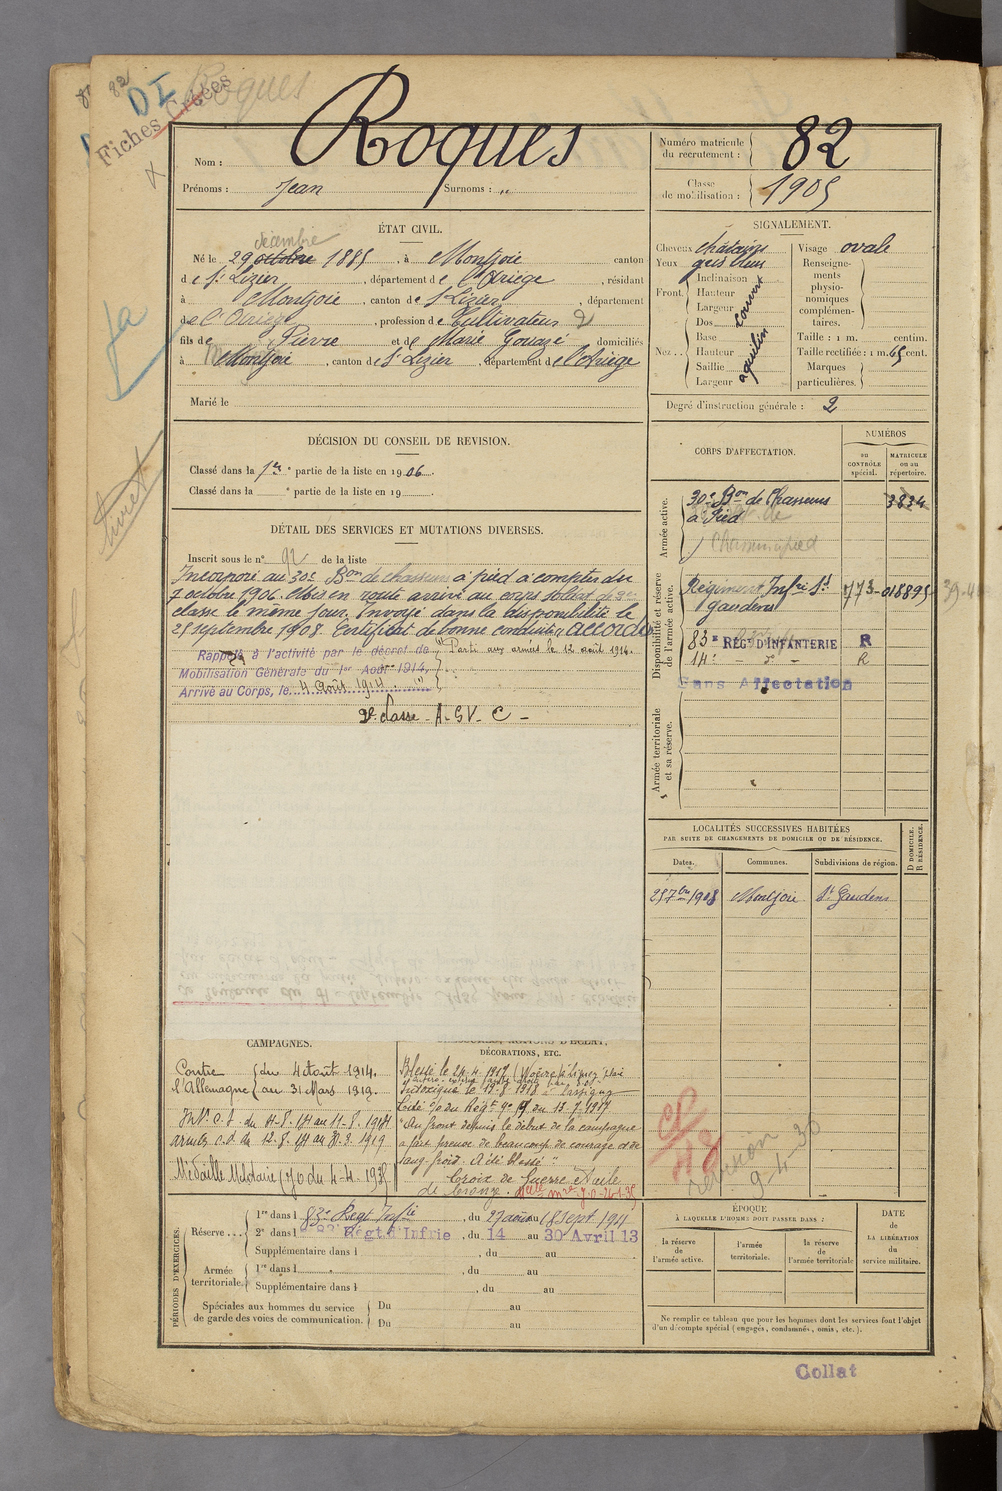 82
DI
Roques
Fiches Créées
Nom : Roques
Prénoms : Jean Surnoms : "
Numéro matricule du recrutement : 82
Classe de mobilisation : 1905
ÉTAT CIVIL.
décembre
Né le 29 octobre 1885, à Montjoie canton
de St Lizier, département de l'Ariège, résidant
à Montjoie, canton de St Lizier, département
de l'Ariège, profession de Cultivateur 2
fils de Pierre et de Marie Gouazé domiciliés
à Montjoie, canton de St Lizier, département de l'Ariège
Marié le
SIGNALEMENT.
Cheveux châtains
Yeux gris bleus
Front. Inclinaison
Hauteur
Largeur
couvert
Nez.. Dos
Base
Hauteur
Saillie
Largeur
aquilin
Visage ovale
Renseignements physionomiques complémentaires.
Taille : 1 m. centim.
Taille rectifiée : 1 m. 65 cent.
Marques particulières.
Degré d'instruction générale : 2
DÉCISION DU CONSEIL DE REVISION.
Classé dans la 1re partie de la liste en 1906.
Classé dans la e partie de la liste en 19
livret
DÉTAIL DES SERVICES ET MUTATIONS DIVERSES.
Inscrit sous le n° 92 de la liste
Incorporé au 30e Bon de chasseurs à pied à compter du
7 octobre 1906. Mis en route arrivé au corps soldat de 2me
classe le même jour. Envoyé dans la disponibilité le
25 septembre 1908. Certificat de bonne conduite "accordé"
Rappelé à l'activité par le décret de
Mobilisation Générale du 1er Août 1914,
Arrivé au Corps, le 4 août 1914
Parti aux armées le 12 août 1914.
2e classe - A - S V - C -
CORPS D'AFFECTATION.
NUMÉROS
au CONTRÔLE spécial.
MATRICULE ou au répertoire.
Armée active.
30e Bon de Chasseurs
à Pied
3834
Chasseurs à pied
Disponibilité et réserve de l'armée active.
Régiment Infie St
gaudens
773-018895
83e RÉGt D'INFANTERIE R
14e - d° - R
Sans Affectation
Armée territoriale et sa réserve.
LOCALITÉS SUCCESSIVES HABITÉES
PAR SUITE DE CHANGEMENTS DE DOMICILE OU DE RÉSIDENCE.
Dates. Communes. Subdivisions de région. D DOMICILE. R RÉSIDENCE.
25 7bre 1908 Montjoie St Gaudens
CAMPAGNES.
Contre l'Allemagne { du 4 Août 1914.
au 31 Mars 1919.
Int. c.s. du 4-8-14 au 11-8-1914
armées c.d. du 12-8-14 au 30-3-1919
Médaille Militaire (JO du 4-4-1935)
DÉCORATIONS, ETC.
Blessé le 24-4-1917
Intoxiqué le 17-8 1918 à Lassigny
Cité O/du Régt n° du 13-7-1917
"Au front depuis le début de la campagne
a fait preuve de beaucoup de courage et de
sang-froid. A été blessé"
Croix de Guerre Étoile
de bronze.
revision
9-4-30
PÉRIODES D'EXERCICES.
Réserve... 1re dans l 83e Régt Infie, du 27 août au 18 sept 1911
2e dans l 83e Régt d'Infrie, du 14 au 30 Avril 13
Supplémentaire dans l , du au
Armée territoriale. 1re dans l , du au
Supplémentaire dans l , du au
Spéciales aux hommes du service de garde des voies de communication. Du au
Du au
ÉPOQUE
À LAQUELLE L'HOMME DOIT PASSER DANS :
la réserve de l'armée active.
l'armée territoriale.
la réserve de l'armée territoriale
DATE de LA LIBÉRATION du service militaire.
Ne remplir ce tableau que pour les hommes dont les services font l'objet
d'un décompte spécial (engagés, condamnés, omis, etc.).
Collat